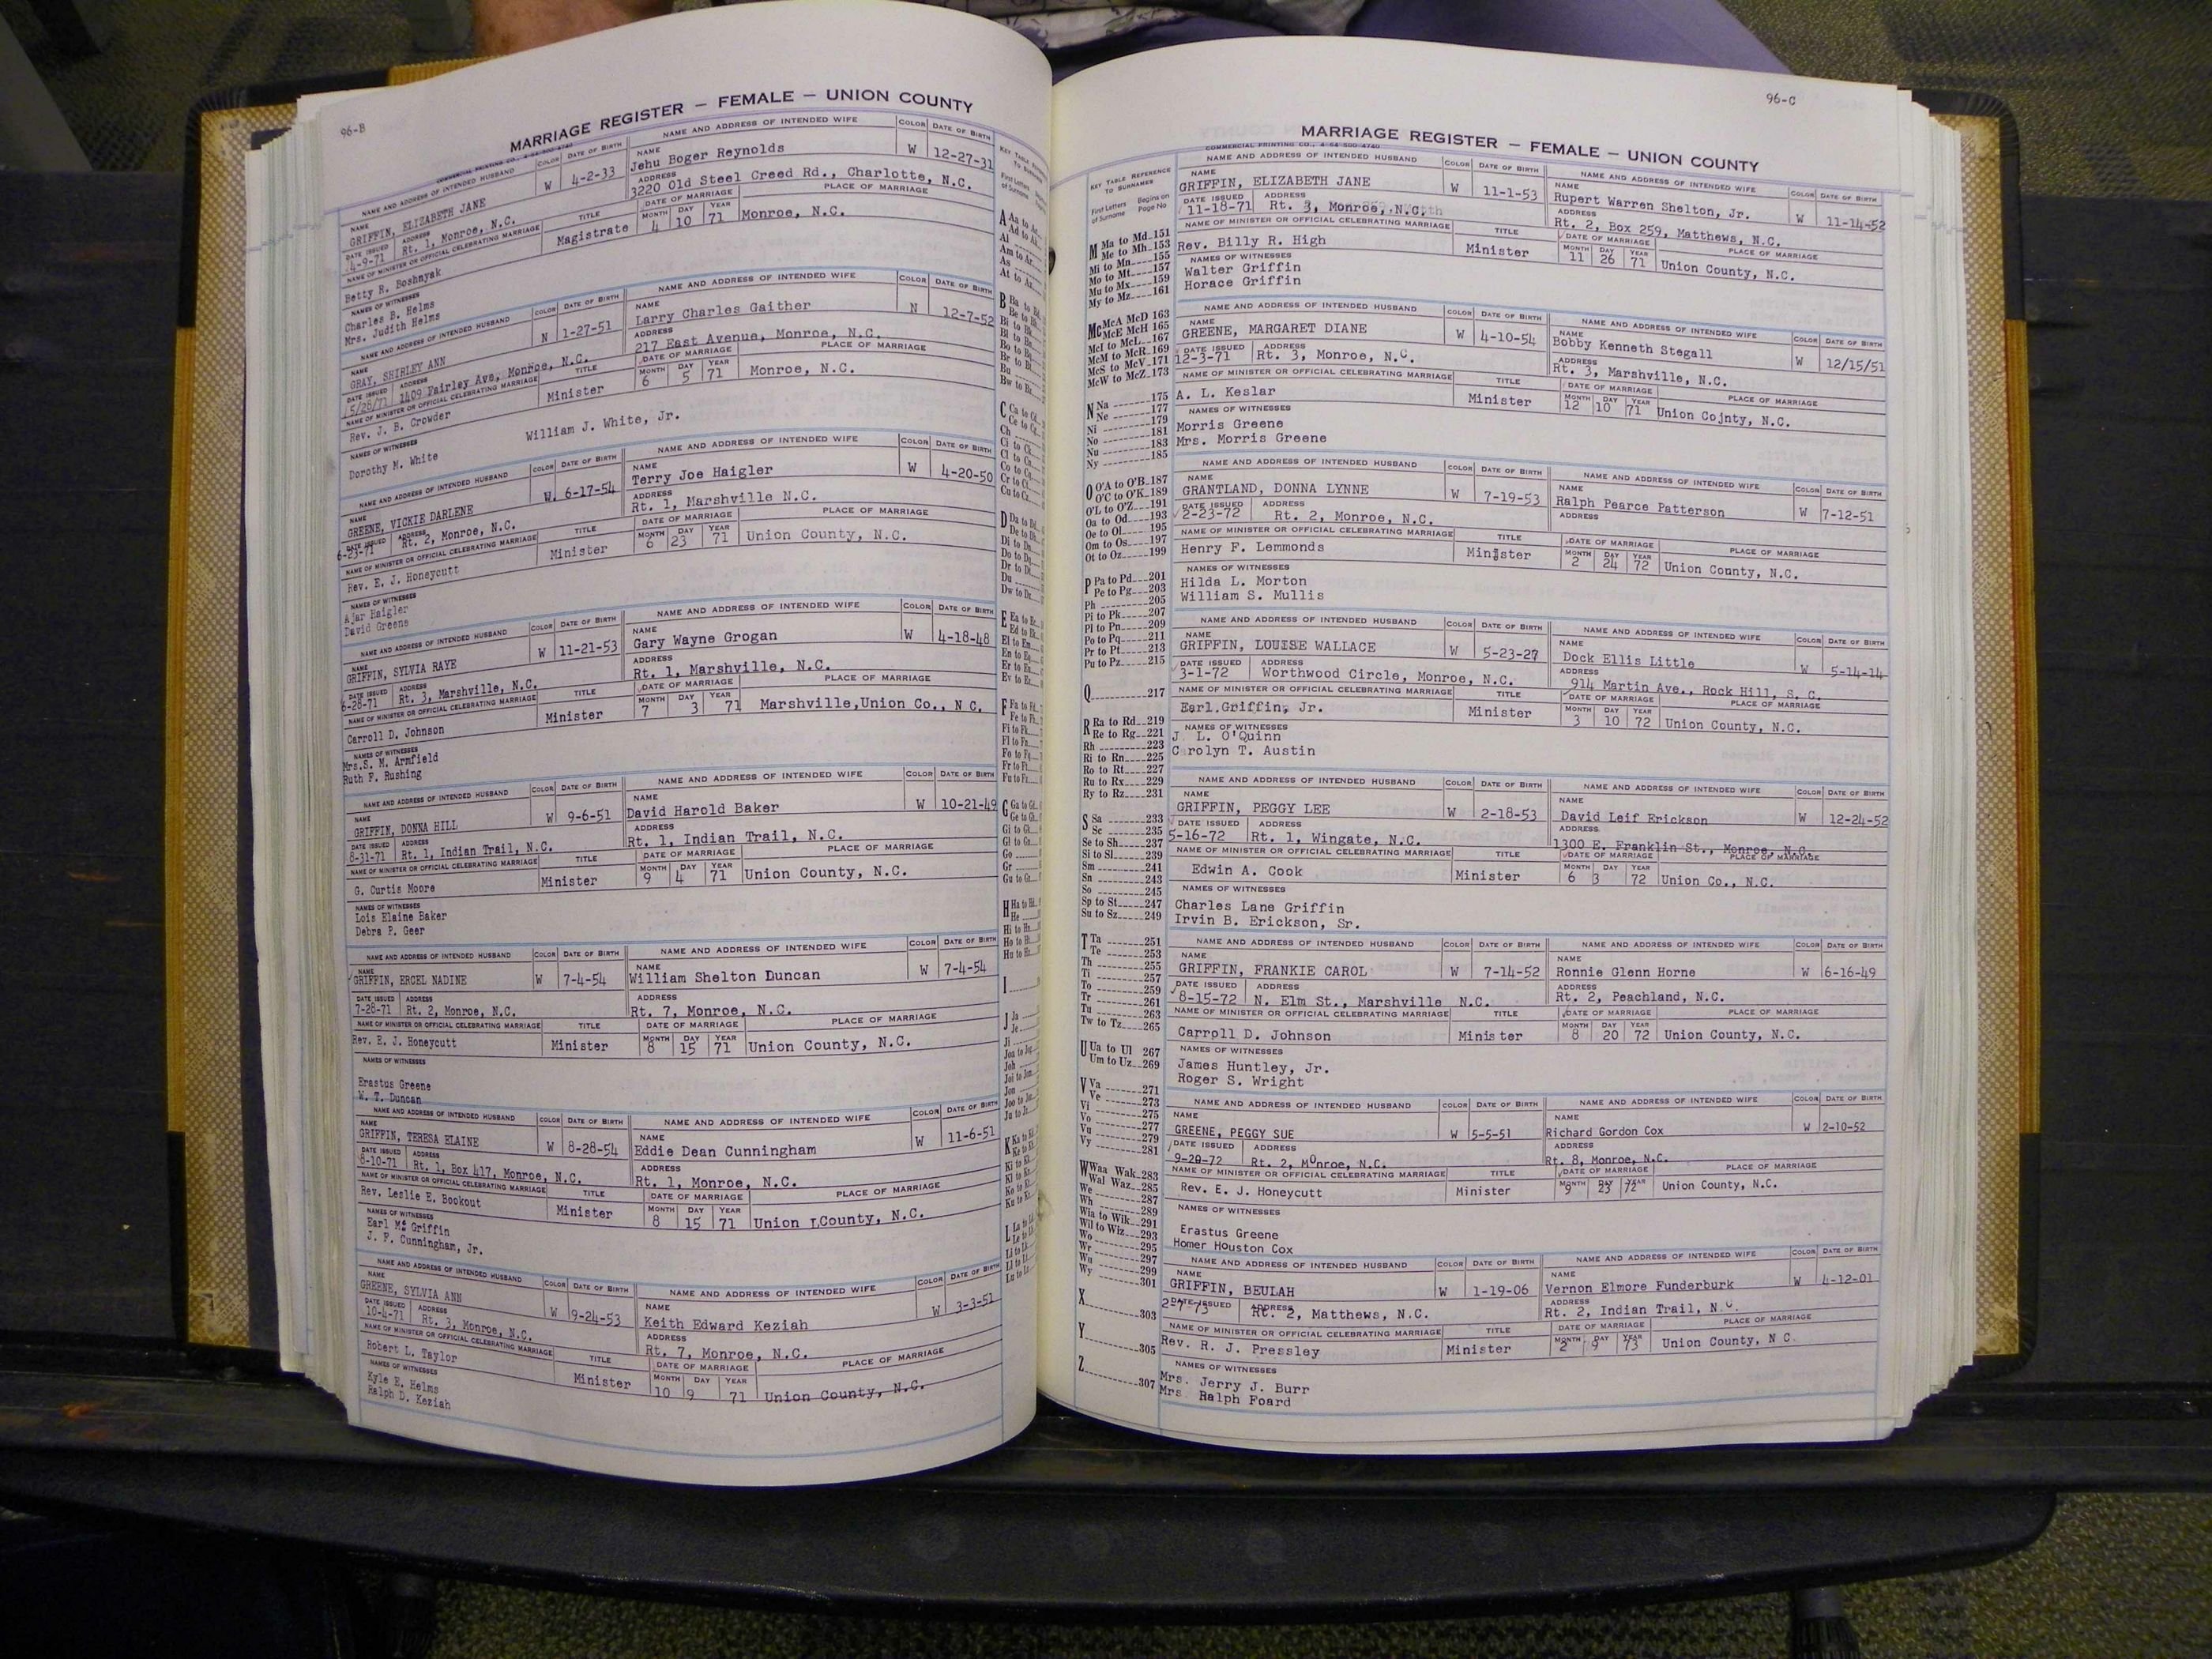 96-B
MARRIAGE REGISTER — FEMALE — UNION COUNTY
COMMERCIAL PRINTING CO., 4-64-500-4740
NAME AND ADDRESS OF INTENDED HUSBAND COLOR DATE OF BIRTH NAME AND ADDRESS OF INTENDED WIFE COLOR DATE OF BIRTH
NAME GRIFFIN, ELIZABETH JANE W 4-2-33 NAME Jehu Boger Reynolds W 12-27-31
DATE ISSUED 4-9-71 ADDRESS Rt. 1, Monroe, N.C. ADDRESS 3220 Old Steel Creed Rd., Charlotte, N.C.
NAME OF MINISTER OR OFFICIAL CELEBRATING MARRIAGE TITLE DATE OF MARRIAGE PLACE OF MARRIAGE
Betty R. Boshnyak Magistrate MONTH 4 DAY 10 YEAR 71 Monroe, N.C.
NAMES OF WITNESSES
Charles B. Helms
Mrs. Judith Helms
NAME AND ADDRESS OF INTENDED HUSBAND COLOR DATE OF BIRTH NAME AND ADDRESS OF INTENDED WIFE COLOR DATE OF BIRTH
NAME GRAY, SHIRLEY ANN N 1-27-51 NAME Larry Charles Gaither N 12-7-52
DATE ISSUED 5/28/71 ADDRESS 1409 Fairley Ave, Monroe, N.C. ADDRESS 217 East Avenue, Monroe, N.C.
NAME OF MINISTER OR OFFICIAL CELEBRATING MARRIAGE TITLE DATE OF MARRIAGE PLACE OF MARRIAGE
Rev. J. B. Crowder Minister MONTH 6 DAY 5 YEAR 71 Monroe, N.C.
NAMES OF WITNESSES
Dorothy M. White William J. White, Jr.
NAME AND ADDRESS OF INTENDED HUSBAND COLOR DATE OF BIRTH NAME AND ADDRESS OF INTENDED WIFE COLOR DATE OF BIRTH
NAME GREENE, VICKIE DARLENE W 6-17-54 NAME Terry Joe Haigler W 4-20-50
DATE ISSUED 6-23-71 ADDRESS Rt. 2, Monroe, N.C. ADDRESS Rt. 1, Marshville N.C.
NAME OF MINISTER OR OFFICIAL CELEBRATING MARRIAGE TITLE DATE OF MARRIAGE PLACE OF MARRIAGE
Rev. E. J. Honeycutt Minister MONTH 6 DAY 23 YEAR 71 Union County, N.C.
NAMES OF WITNESSES
Ajar Haigler
David Greene
NAME AND ADDRESS OF INTENDED HUSBAND COLOR DATE OF BIRTH NAME AND ADDRESS OF INTENDED WIFE COLOR DATE OF BIRTH
NAME GRIFFIN, SYLVIA RAYE W 11-21-53 NAME Gary Wayne Grogan W 4-18-48
DATE ISSUED 6-28-71 ADDRESS Rt. 3, Marshville, N.C. ADDRESS Rt. 1, Marshville, N.C.
NAME OF MINISTER OR OFFICIAL CELEBRATING MARRIAGE TITLE DATE OF MARRIAGE PLACE OF MARRIAGE
Carroll D. Johnson Minister MONTH 7 DAY 3 YEAR 71 Marshville,Union Co., N C.
NAMES OF WITNESSES
Mrs.S. M. Armfield
Ruth F. Rushing
NAME AND ADDRESS OF INTENDED HUSBAND COLOR DATE OF BIRTH NAME AND ADDRESS OF INTENDED WIFE COLOR DATE OF BIRTH
NAME GRIFFIN, DONNA HILL W 9-6-51 NAME David Harold Baker W 10-21-49
DATE ISSUED 8-31-71 ADDRESS Rt. 1, Indian Trail, N.C. ADDRESS Rt. 1, Indian Trail, N.C.
NAME OF MINISTER OR OFFICIAL CELEBRATING MARRIAGE TITLE DATE OF MARRIAGE PLACE OF MARRIAGE
G. Curtis Moore Minister MONTH 9 DAY 4 YEAR 71 Union County, N.C.
NAMES OF WITNESSES
Lois Elaine Baker
Debra P. Geer
NAME AND ADDRESS OF INTENDED HUSBAND COLOR DATE OF BIRTH NAME AND ADDRESS OF INTENDED WIFE COLOR DATE OF BIRTH
NAME GRIFFIN, ERCEL NADINE W 7-4-54 NAME William Shelton Duncan W 7-4-54
DATE ISSUED 7-28-71 ADDRESS Rt. 2, Monroe, N.C. ADDRESS Rt. 7, Monroe, N.C.
NAME OF MINISTER OR OFFICIAL CELEBRATING MARRIAGE TITLE DATE OF MARRIAGE PLACE OF MARRIAGE
Rev. E. J. Honeycutt Minister MONTH 8 DAY 15 YEAR 71 Union County, N.C.
NAMES OF WITNESSES
Erastus Greene
W. T. Duncan
NAME AND ADDRESS OF INTENDED HUSBAND COLOR DATE OF BIRTH NAME AND ADDRESS OF INTENDED WIFE COLOR DATE OF BIRTH
NAME GRIFFIN, TERESA ELAINE W 8-28-54 NAME Eddie Dean Cunningham W 11-6-51
DATE ISSUED 8-10-71 ADDRESS Rt. 1, Box 417, Monroe, N.C. ADDRESS Rt. 1, Monroe, N.C.
NAME OF MINISTER OR OFFICIAL CELEBRATING MARRIAGE TITLE DATE OF MARRIAGE PLACE OF MARRIAGE
Rev. Leslie E. Bookout Minister MONTH 8 DAY 15 YEAR 71 Union LCounty, N.C.
NAMES OF WITNESSES
Earl Griffin
J. F. Cunningham, Jr.
NAME AND ADDRESS OF INTENDED HUSBAND COLOR DATE OF BIRTH NAME AND ADDRESS OF INTENDED WIFE COLOR DATE OF BIRTH
NAME GREENE, SYLVIA ANN W 9-24-53 NAME Keith Edward Keziah W 3-3-51
DATE ISSUED 10-4-71 ADDRESS Rt. 3, Monroe, N.C. ADDRESS Rt. 7, Monroe, N.C.
NAME OF MINISTER OR OFFICIAL CELEBRATING MARRIAGE TITLE DATE OF MARRIAGE PLACE OF MARRIAGE
Robert L. Taylor Minister MONTH 10 DAY 9 YEAR 71 Union County, N.C.
NAMES OF WITNESSES
Kyle E. Helms
Ralph D. Keziah
96-C
MARRIAGE REGISTER — FEMALE — UNION COUNTY
COMMERCIAL PRINTING CO., 4-64-500-4740
KEY TABLE REFERENCE TO SURNAMES
First Letters of Surname Begins on Page No
M Ma to Md 151
Me to Mh 153
Mi to Mn 155
Mo to Mt 157
Mu to Mx 159
My to Mz 161
Mc McA McD 163
McE McH 165
McI to McL 167
McM to McR 169
McS to McV 171
McW to McZ 173
N Na 175
Ne 177
Ni 179
No 181
Nu 183
Ny 185
O O'A to O'B 187
O'C to O'K 189
O'L to O'Z 191
Oa to Od 193
Oe to Ol 195
Om to Os 197
Ot to Oz 199
P Pa to Pd 201
Pe to Pg 203
Ph 205
Pi to Pk 207
Pl to Pn 209
Po to Pq 211
Pr to Pt 213
Pu to Pz 215
Q 217
R Ra to Rd 219
Re to Rg 221
Rh 223
Ri to Rn 225
Ro to Rt 227
Ru to Rx 229
Ry to Rz 231
S Sa 233
Sc 235
Se to Sh 237
Si to Sl 239
Sm 241
Sn 243
So 245
Sp to St 247
Su to Sz 249
T Ta 251
Te 253
Th 255
Ti 257
To 259
Tr 261
Tu 263
Tw to Tz 265
U Ua to Ul 267
Um to Uz 269
V Va 271
Ve 273
Vi 275
Vo 277
Vu 279
Vy 281
W Waa Wak 283
Wal Waz 285
We 287
Wh 289
Wia to Wik 291
Wil to Wiz 293
Wo 295
Wr 297
Wu 299
Wy 301
X 303
Y 305
Z 307
NAME AND ADDRESS OF INTENDED HUSBAND COLOR DATE OF BIRTH NAME AND ADDRESS OF INTENDED WIFE COLOR DATE OF BIRTH
NAME GRIFFIN, ELIZABETH JANE W 11-1-53 NAME Rupert Warren Shelton, Jr. W 11-14-52
DATE ISSUED 11-18-71 ADDRESS Rt. 3, Monroe, N.C. ADDRESS Rt. 2, Box 259, Matthews, N.C.
NAME OF MINISTER OR OFFICIAL CELEBRATING MARRIAGE TITLE DATE OF MARRIAGE PLACE OF MARRIAGE
Rev. Billy R. High Minister MONTH 11 DAY 26 YEAR 71 Union County, N.C.
NAMES OF WITNESSES
Walter Griffin
Horace Griffin
NAME AND ADDRESS OF INTENDED HUSBAND COLOR DATE OF BIRTH NAME AND ADDRESS OF INTENDED WIFE COLOR DATE OF BIRTH
NAME GREENE, MARGARET DIANE W 4-10-54 NAME Bobby Kenneth Stegall W 12/15/51
DATE ISSUED 12-3-71 ADDRESS Rt. 3, Monroe, N.C. ADDRESS Rt. 3, Marshville, N.C.
NAME OF MINISTER OR OFFICIAL CELEBRATING MARRIAGE TITLE DATE OF MARRIAGE PLACE OF MARRIAGE
A. L. Keslar Minister MONTH 12 DAY 10 YEAR 71 Union Cojnty, N.C.
NAMES OF WITNESSES
Morris Greene
Mrs. Morris Greene
NAME AND ADDRESS OF INTENDED HUSBAND COLOR DATE OF BIRTH NAME AND ADDRESS OF INTENDED WIFE COLOR DATE OF BIRTH
NAME GRANTLAND, DONNA LYNNE W 7-19-53 NAME Ralph Pearce Patterson W 7-12-51
DATE ISSUED 2-23-72 ADDRESS Rt. 2, Monroe, N.C. ADDRESS
NAME OF MINISTER OR OFFICIAL CELEBRATING MARRIAGE TITLE DATE OF MARRIAGE PLACE OF MARRIAGE
Henry F. Lemmonds Minister MONTH 2 DAY 24 YEAR 72 Union County, N.C.
NAMES OF WITNESSES
Hilda L. Morton
William S. Mullis
NAME AND ADDRESS OF INTENDED HUSBAND COLOR DATE OF BIRTH NAME AND ADDRESS OF INTENDED WIFE COLOR DATE OF BIRTH
NAME GRIFFIN, LOUISE WALLACE W 5-23-27 NAME Dock Ellis Little W 5-14-14
DATE ISSUED 3-1-72 ADDRESS Worthwood Circle, Monroe, N.C. ADDRESS 914 Martin Ave., Rock Hill, S. C.
NAME OF MINISTER OR OFFICIAL CELEBRATING MARRIAGE TITLE DATE OF MARRIAGE PLACE OF MARRIAGE
Earl Griffin, Jr. Minister MONTH 3 DAY 10 YEAR 72 Union County, N.C.
NAMES OF WITNESSES
J. L. O'Quinn
C rolyn T. Austin
NAME AND ADDRESS OF INTENDED HUSBAND COLOR DATE OF BIRTH NAME AND ADDRESS OF INTENDED WIFE COLOR DATE OF BIRTH
NAME GRIFFIN, PEGGY LEE W 2-18-53 NAME David Leif Erickson W 12-24-52
DATE ISSUED 5-16-72 ADDRESS Rt. 1, Wingate, N.C. ADDRESS 1300 E. Franklin St., Monroe, N.C.
NAME OF MINISTER OR OFFICIAL CELEBRATING MARRIAGE TITLE DATE OF MARRIAGE PLACE OF MARRIAGE
Edwin A. Cook Minister MONTH 6 DAY 3 YEAR 72 Union Co., N.C.
NAMES OF WITNESSES
Charles Lane Griffin
Irvin B. Erickson, Sr.
NAME AND ADDRESS OF INTENDED HUSBAND COLOR DATE OF BIRTH NAME AND ADDRESS OF INTENDED WIFE COLOR DATE OF BIRTH
NAME GRIFFIN, FRANKIE CAROL W 7-14-52 NAME Ronnie Glenn Horne W 6-16-49
DATE ISSUED 8-15-72 ADDRESS N. Elm St., Marshville N.C. ADDRESS Rt. 2, Peachland, N.C.
NAME OF MINISTER OR OFFICIAL CELEBRATING MARRIAGE TITLE DATE OF MARRIAGE PLACE OF MARRIAGE
Carroll D. Johnson Minister MONTH 8 DAY 20 YEAR 72 Union County, N.C.
NAMES OF WITNESSES
James Huntley, Jr.
Roger S. Wright
NAME AND ADDRESS OF INTENDED HUSBAND COLOR DATE OF BIRTH NAME AND ADDRESS OF INTENDED WIFE COLOR DATE OF BIRTH
NAME GREENE, PEGGY SUE W 5-5-51 NAME Richard Gordon Cox W 2-10-52
DATE ISSUED 9-20-72 ADDRESS Rt. 2, Monroe, N.C. ADDRESS Rt. 8, Monroe, N.C.
NAME OF MINISTER OR OFFICIAL CELEBRATING MARRIAGE TITLE DATE OF MARRIAGE PLACE OF MARRIAGE
Rev. E. J. Honeycutt Minister MONTH 9 DAY 23 YEAR 72 Union County, N.C.
NAMES OF WITNESSES
Erastus Greene
Homer Houston Cox
NAME AND ADDRESS OF INTENDED HUSBAND COLOR DATE OF BIRTH NAME AND ADDRESS OF INTENDED WIFE COLOR DATE OF BIRTH
NAME GRIFFIN, BEULAH W 1-19-06 NAME Vernon Elmore Funderburk W 4-12-01
DATE ISSUED 2-7-73 ADDRESS Rt. 2, Matthews, N.C. ADDRESS Rt. 2, Indian Trail, N.C.
NAME OF MINISTER OR OFFICIAL CELEBRATING MARRIAGE TITLE DATE OF MARRIAGE PLACE OF MARRIAGE
Rev. R. J. Pressley Minister MONTH 2 DAY 9 YEAR 73 Union County, N C.
NAMES OF WITNESSES
Mrs. Jerry J. Burr
Mrs Ralph Foard